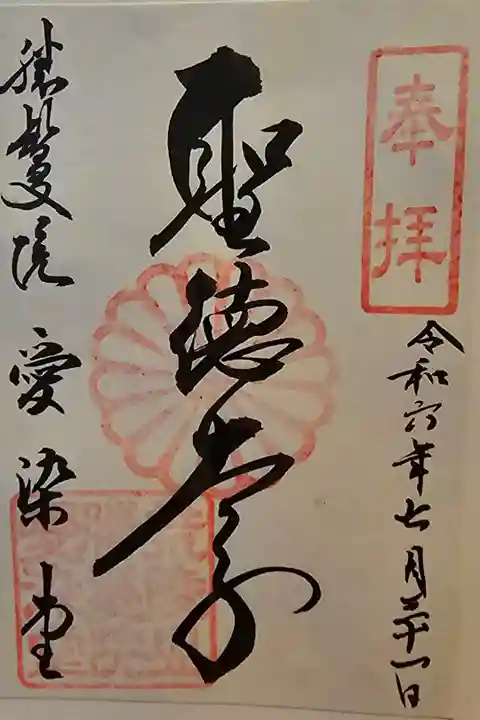 奉拝
令和六年七月三十一日
聖徳太子
勝鬘院 愛染堂